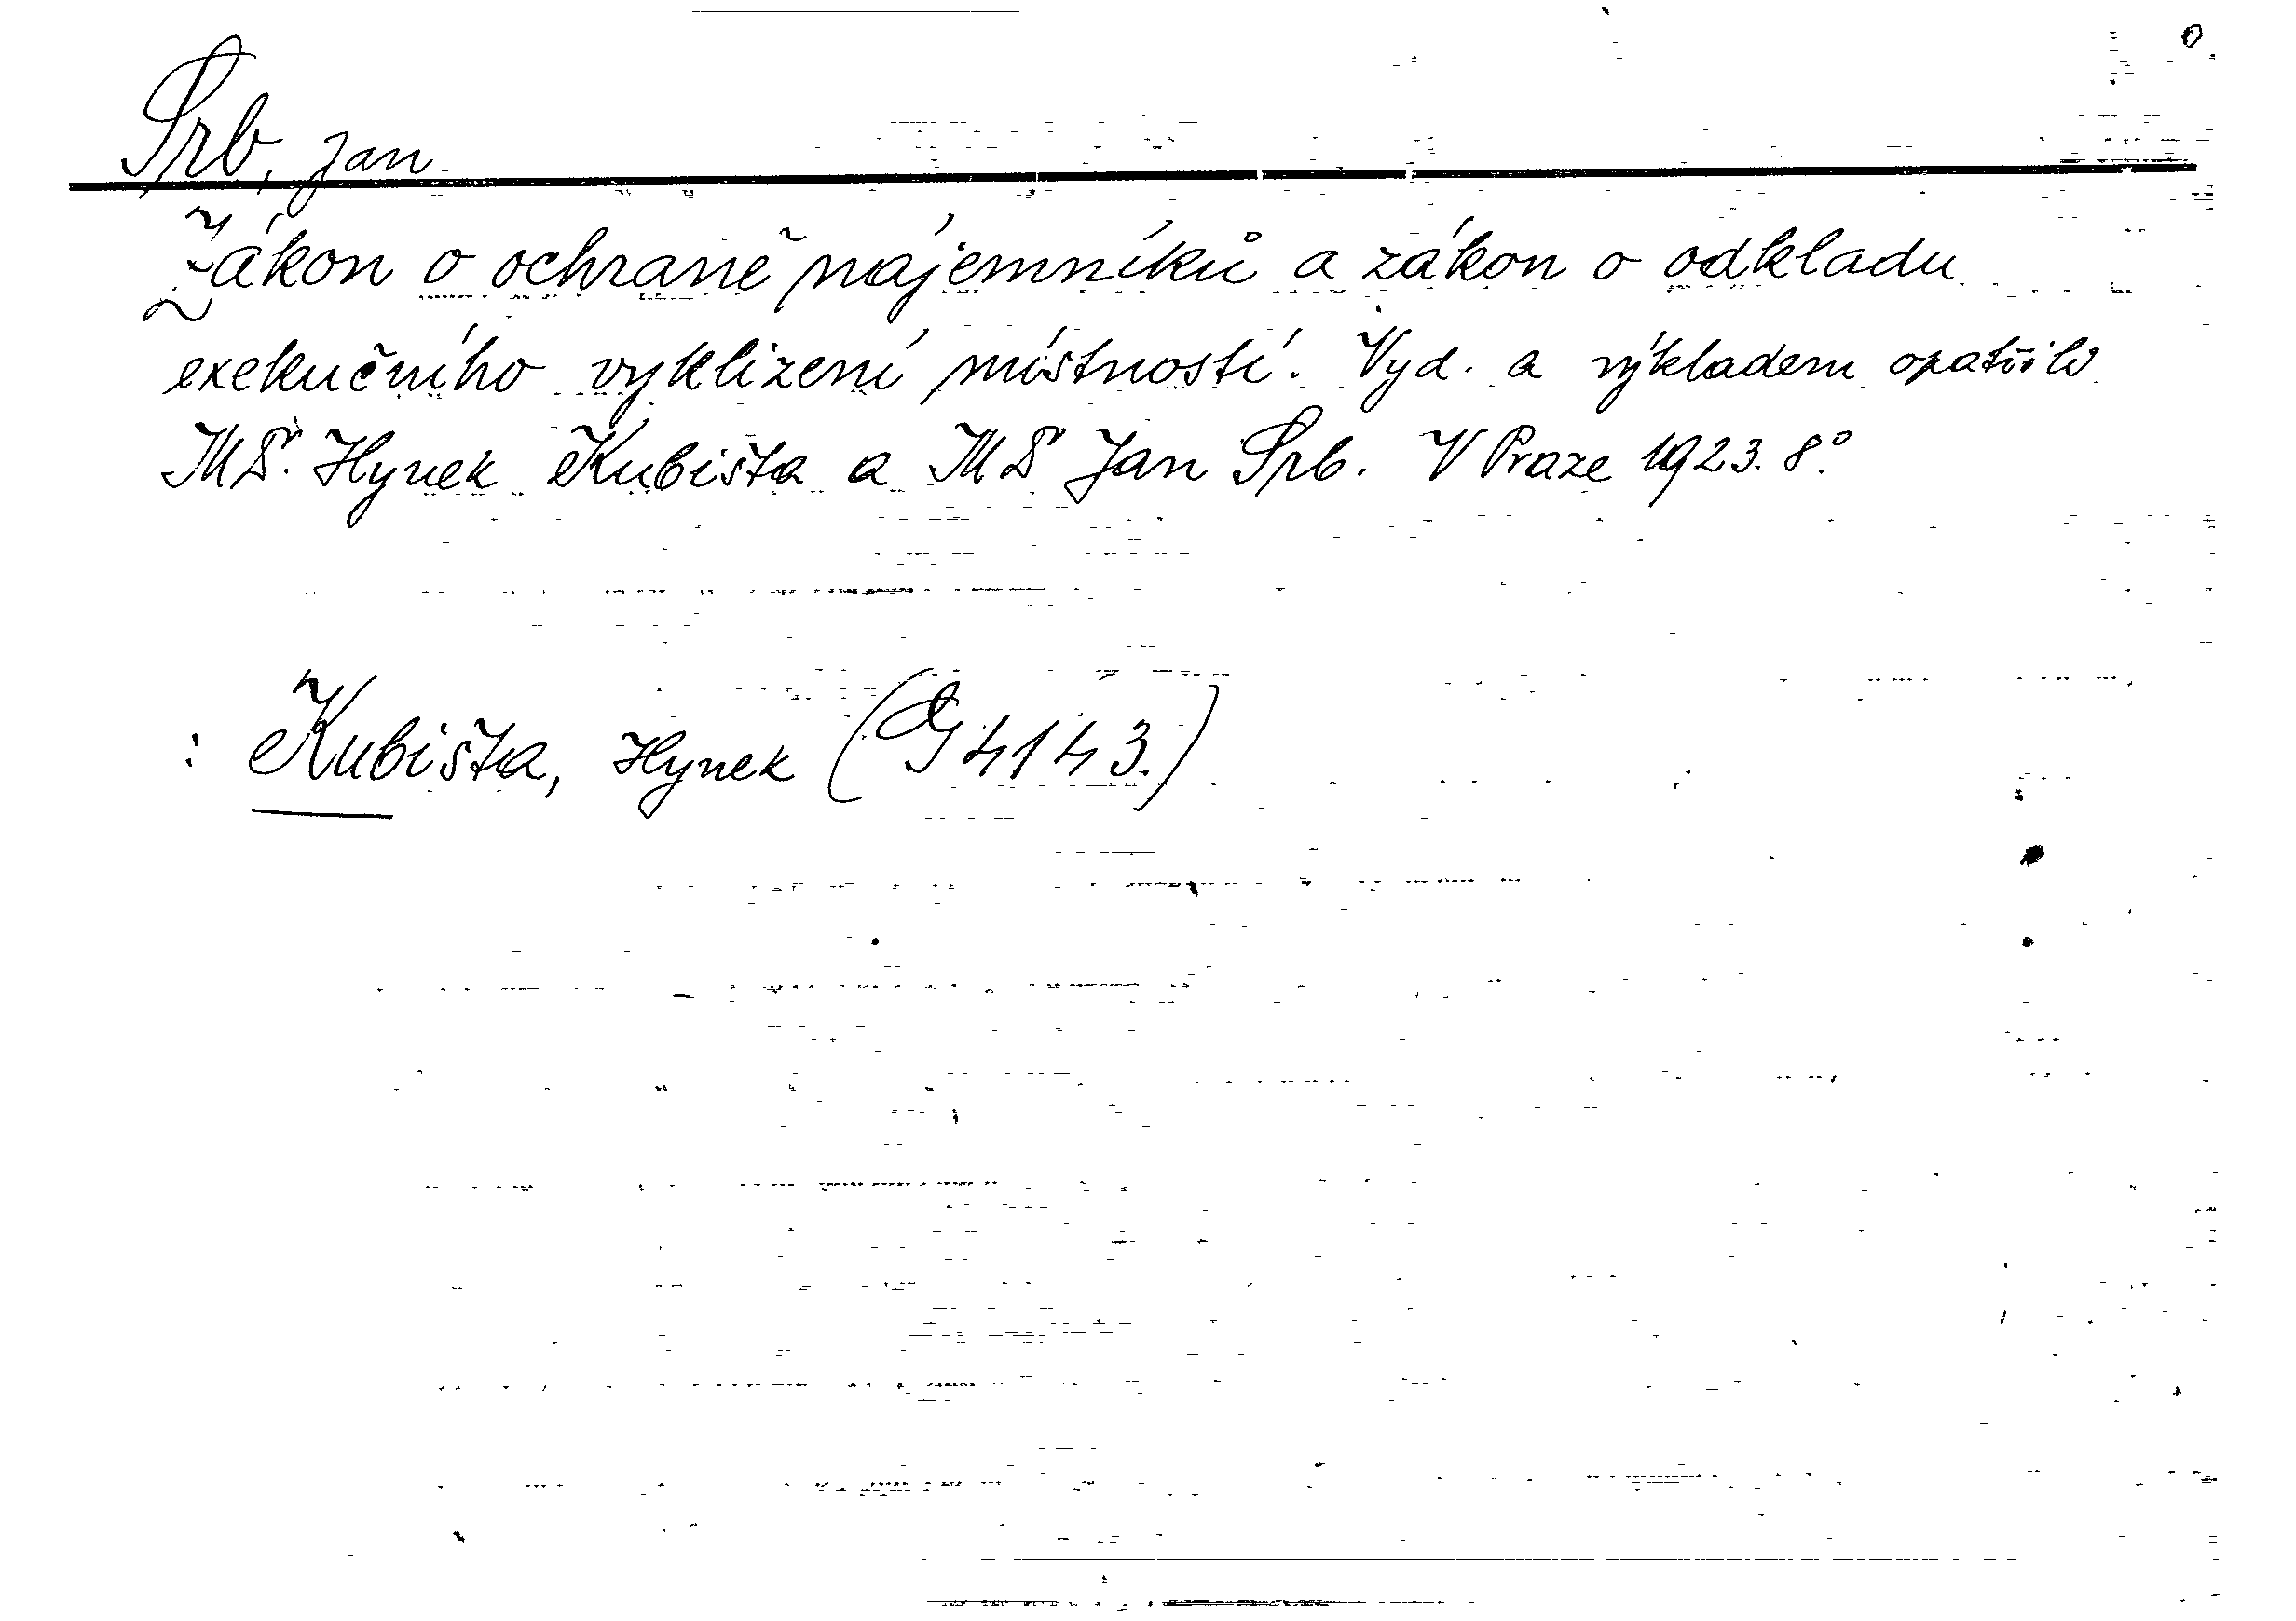 Srb, Jan
Zákon o ochraně nájemníků a zákon o odkladu
exekučního vyklizení místností. Vyd. a výkladem opatřilo
Dr. Hynek Kubišta a Dr Jan Srb. V Praze 1923. 8°.
: Kubišta, Hynek (G 4143.)